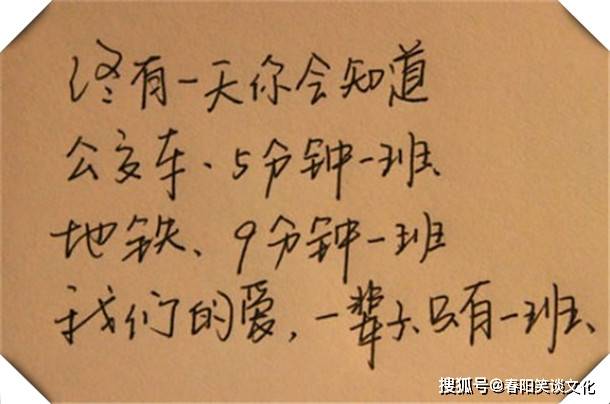 终有一天你会知道
公交车、5分钟一班、
地铁、9分钟一班
我们的爱，一辈子只有一班、
搜狐号@春阳笑谈文化